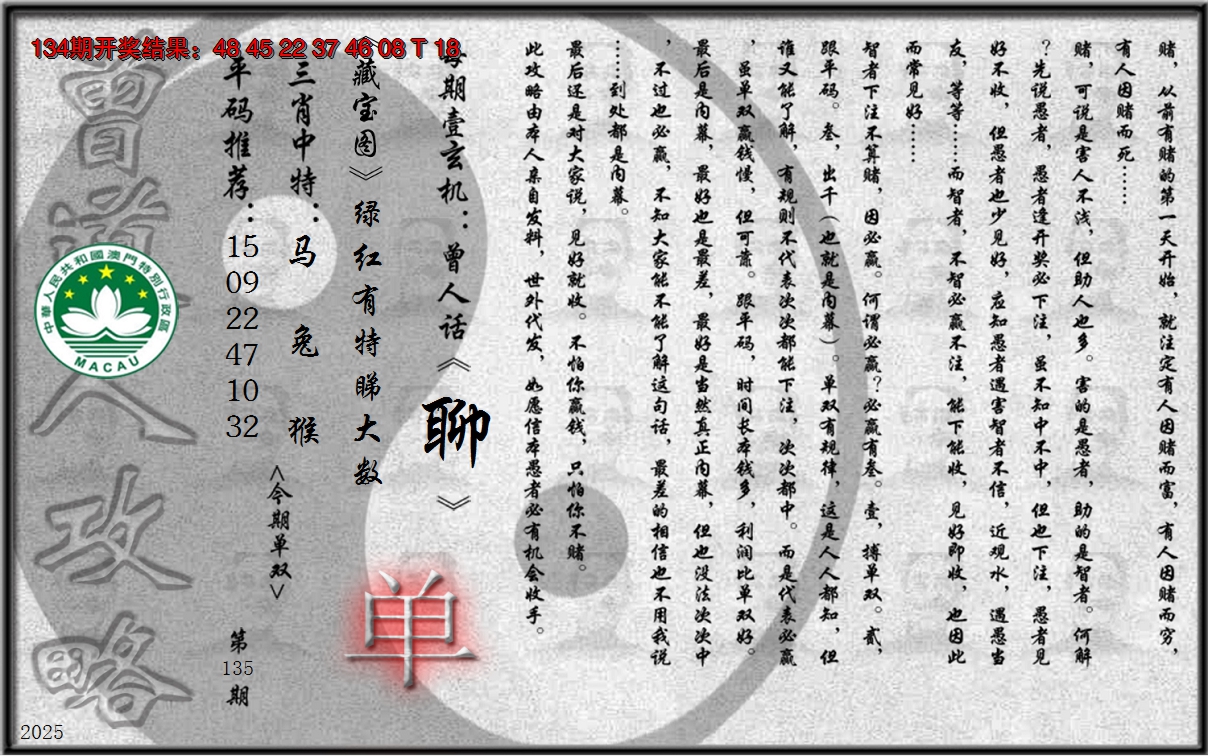 134期开奖结果：48 45 22 37 46 08 T 18
赌，从前有赌的第一天开始，就注定有人因赌而富，有人因赌而穷，
有人因赌而死……
赌，可说是害人不浅，但助人也多。害的是愚者，助的是智者。何解
？先说愚者，愚者逢开奖必下注，虽不知中不中，但也下注，愚者见
好不收，但愚者也少见好，应知愚者遇害智者不信，近观水，遇愚当
友，等等……而智者，不智必赢不注，能下能收，见好即收，也因此
而常见好……
智者下注不算赌，因必赢。何谓必赢？必赢有叁。壹，搏单双。贰，
跟平码。叁，出千（也就是内幕）。单双有规律，这是人人都知，但
谁又能了解，有规则不代表次次都能下注，次次都中。而是代表必赢
，虽单双赢钱慢，但可靠。跟平码，时间长本钱多，利润比单双好。
最后是内幕，最好也是最差，最好是当然真正内幕，但也没法次次中
，不过也必赢，不知大家能不能了解这句话，最差的相信也不用我说
……到处都是内幕。
最后还是对大家说，见好就收。不怕你赢钱，只怕你不赌。
此攻略由本人亲自发料，世外代发，如愿信本愚者必有机会收手。
每期壹玄机：曾人话《聊》
《藏宝图》绿红有特睇大数
三肖中特：马 兔 猴
平码推荐：15 09 22 47 10 32
<今期单双>
单
第135期
曾道人攻略
中華人民共和國澳門特別行政區
MACAU
2025